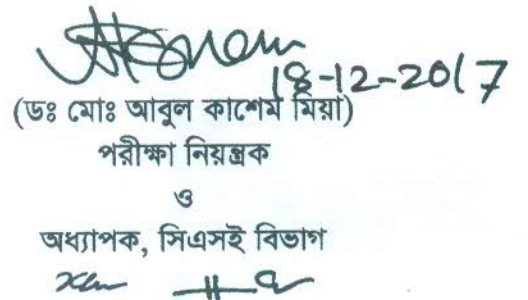 18-12-2017
(ডঃ মোঃ আবুল কাশেম মিয়া)
পরীক্ষা নিয়ন্ত্রক
ও
অধ্যাপক, সিএসই বিভাগ